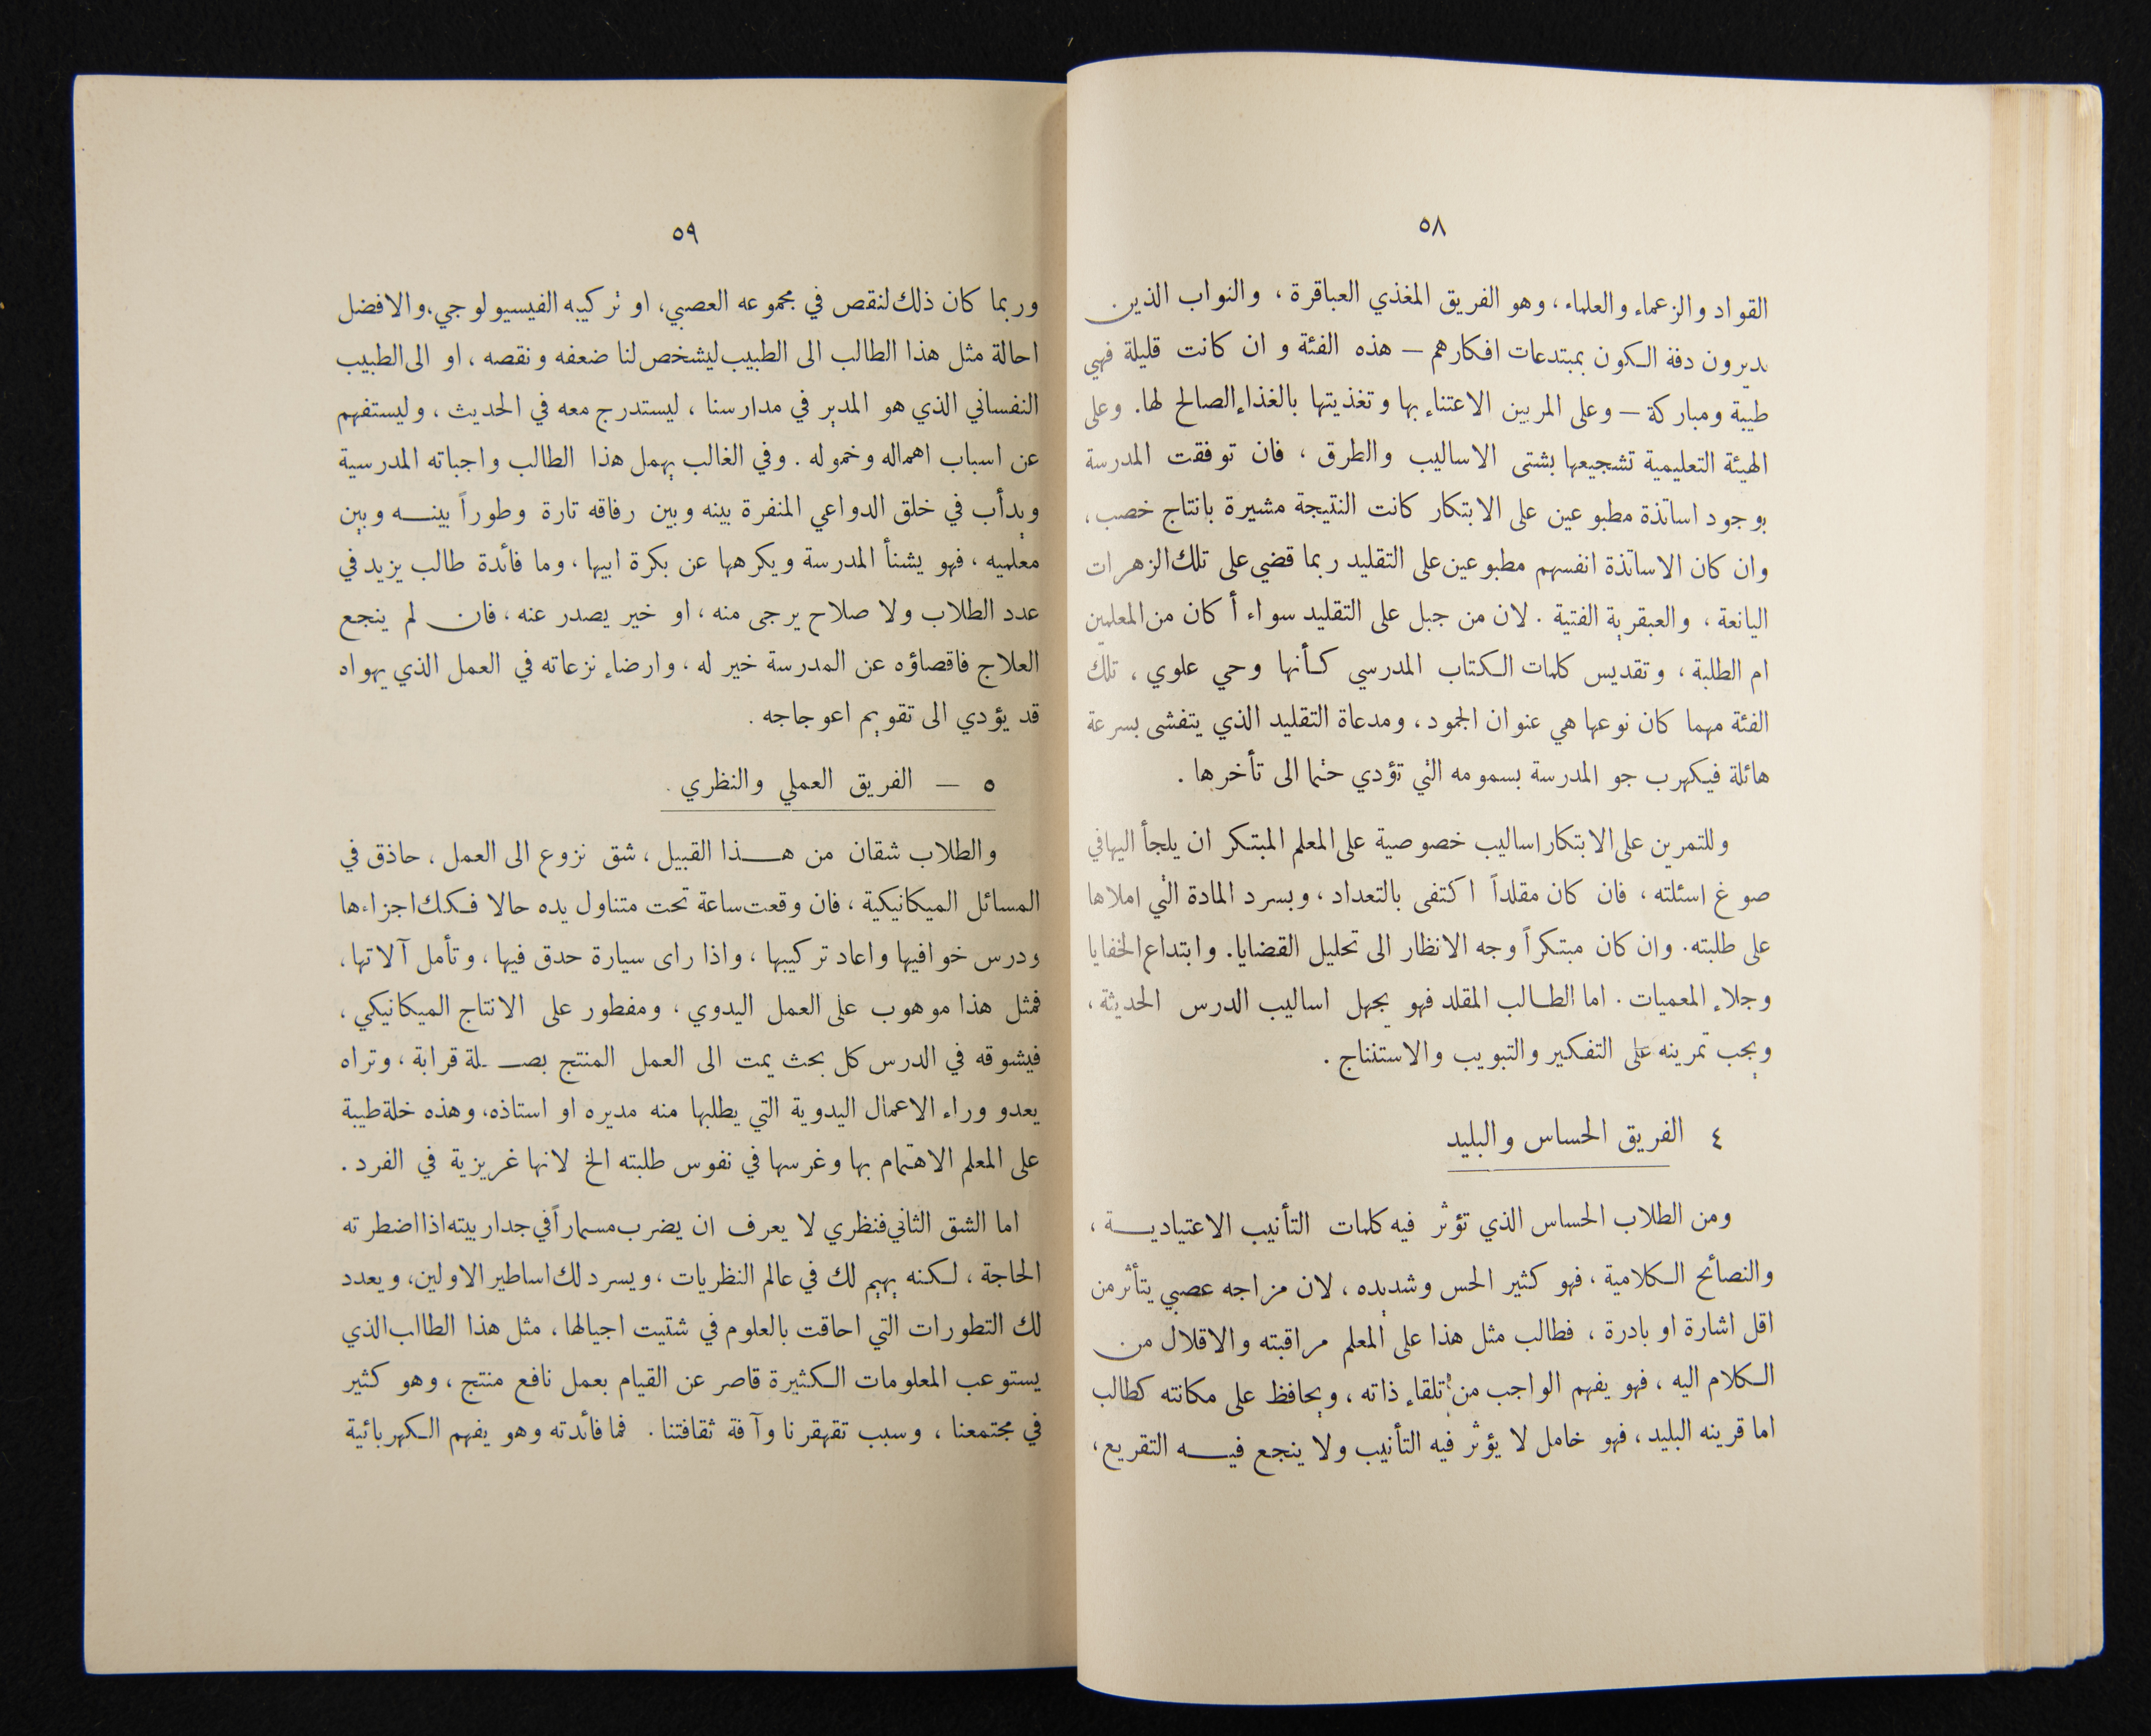 ٥٨
القواد والزعماء والعلماء ، وهو الفريق المغذي العباقرة ، والنواب الذين
يديرون دفة الكون بمبتدعات افكارهم — هذه الفئة و ان كانت قليلة فهي
طيبة ومباركة — وعلى المربين الاعتناء بها وتغذيتها بالغذاء الصالح لها. وعلى
الهيئة التعليمية تشجيعها بشتى الاساليب والطرق ، فان توفقت المدرسة
بوجود اساتذة مطبوعين على الابتكار كانت النتيجة مشيرة بانتاج خصب ،
وان كان الاساتذة انفسهم مطبوعين على التقليد ربما قضي على تلك الزهرات
اليانعة ، والعبقرية الفتية . لان من جبل على التقليد سواء أ كان من المعلمين
ام الطلبة ، وتقديس كلمات الكتاب المدرسي كأنها وحي علوي ، تلك
الفئة مهما كان نوعها هي عنوان الجمود ، ومدعاة التقليد الذي يتفشى بسرعة
هائلة فيكهرب جو المدرسة بسمومه التي تؤدي حتما الى تأخرها .
وللتمرين على الابتكار اساليب خصوصية على المعلم المبتكر ان يلجأ اليها في
صوغ اسئلته ، فان كان مقلداً اكتفى بالتعداد ، وبسرد المادة التي املاها
على طلبته . وان كان مبتكراً وجه الانظار الى تحليل القضايا. وابتداع الخفايا
وجلاء المعميات . اما الطالب المقلد فهو يجهل اساليب الدرس الحديثة ،
ويجب تمرينه على التفكير والتبويب والاستنتاج .
٤ الفريق الحساس والبليد
ومن الطلاب الحساس الذي تؤثر فيه كلمات التأنيب الاعتيادية ،
والنصائح الكلامية ، فهو كثير الحس وشديده ، لان مزاجه عصبي يتأثر من
اقل اشارة او بادرة ، فطالب مثل هذا على المعلم مراقبته والاقلال من
الكلام اليه ، فهو يفهم الواجب من تلقاء ذاته ، ويحافظ على مكانته كطالب
اما قرينه البليد ، فهو خامل لا يؤثر فيه التأنيب ولا ينجع فيه التقريع ،
٥٩
وربما كان ذلك لنقص في مجموعه العصبي، او تركيبه الفيسيولوجي، والافضل
احالة مثل هذا الطالب الى الطبيب ليشخص لنا ضعفه ونقصه ، او الى الطبيب
النفساني الذي هو المدير في مدارسنا ، ليستدرج معه في الحديث ، وليستفهم
عن اسباب اهماله وخموله . وفي الغالب يهمل هذا الطالب واجباته المدرسية
ويدأب في خلق الدواعي المنفرة بينه وبين رفاقه تارة وطوراً بينه وبين
معلميه ، فهو يشنأ المدرسة ويكرهها عن بكرة ابيها ، وما فائدة طالب يزيد في
عدد الطلاب ولا صلاح يرجى منه ، او خير يصدر عنه ، فان لم ينجع
العلاج فاقصاؤه عن المدرسة خير له ، وارضاء نزعاته في العمل الذي يهواه
قد يؤدي الى تقويم اعوجاجه .
٥ — الفريق العملي والنظري .
والطلاب شقان من هذا القبيل ، شق نزوع الى العمل ، حاذق في
المسائل الميكانيكية ، فان وقعت ساعة تحت متناول يده حالا فكك اجزاءها
ودرس خوافيها واعاد تركيبها ، واذا راى سيارة حدق فيها ، وتأمل آلاتها ،
فمثل هذا موهوب على العمل اليدوي ، ومفطور على الانتاج الميكانيكي ،
فيشوقه في الدرس كل بحث يمت الى العمل المنتج بصلة قرابة ، وتراه
يعدو وراء الاعمال اليدوية التي يطلبها منه مديره او استاذه، وهذه خلة طيبة
على المعلم الاهتمام بها وغرسها في نفوس طلبته الخ لانها غريزية في الفرد .
اما الشق الثاني فنظري لا يعرف ان يضرب مسماراً في جدار بيته اذا اضطرته
الحاجة ، لكنه يهيم لك في عالم النظريات ، ويسرد لك اساطير الاولين، ويعدد
لك التطورات التي احاقت بالعلوم في شتيت اجيالها ، مثل هذا الطالب الذي
يستوعب المعلومات الكثيرة قاصر عن القيام بعمل نافع منتج ، وهو كثير
في مجتمعنا ، وسبب تقهقرنا وآفة ثقافتنا . فما فائدته وهو يفهم الكهربائية